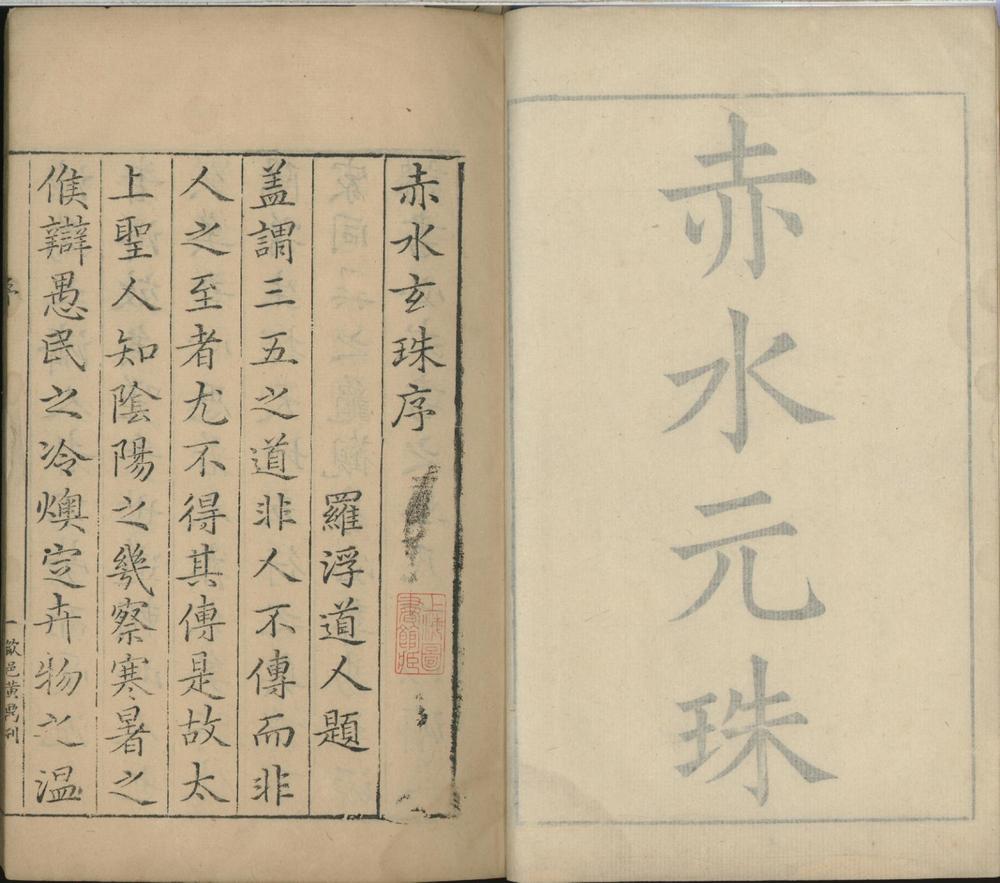 赤水元珠
赤水玄珠序
羅浮道人題
盖謂三五之道非人不傳而非
人之至者尤不得其傳是故太
上聖人知陰陽之幾察寒暑之
候辯愚民之冷燠定卉物之温
序
一 歙邑黄 刋